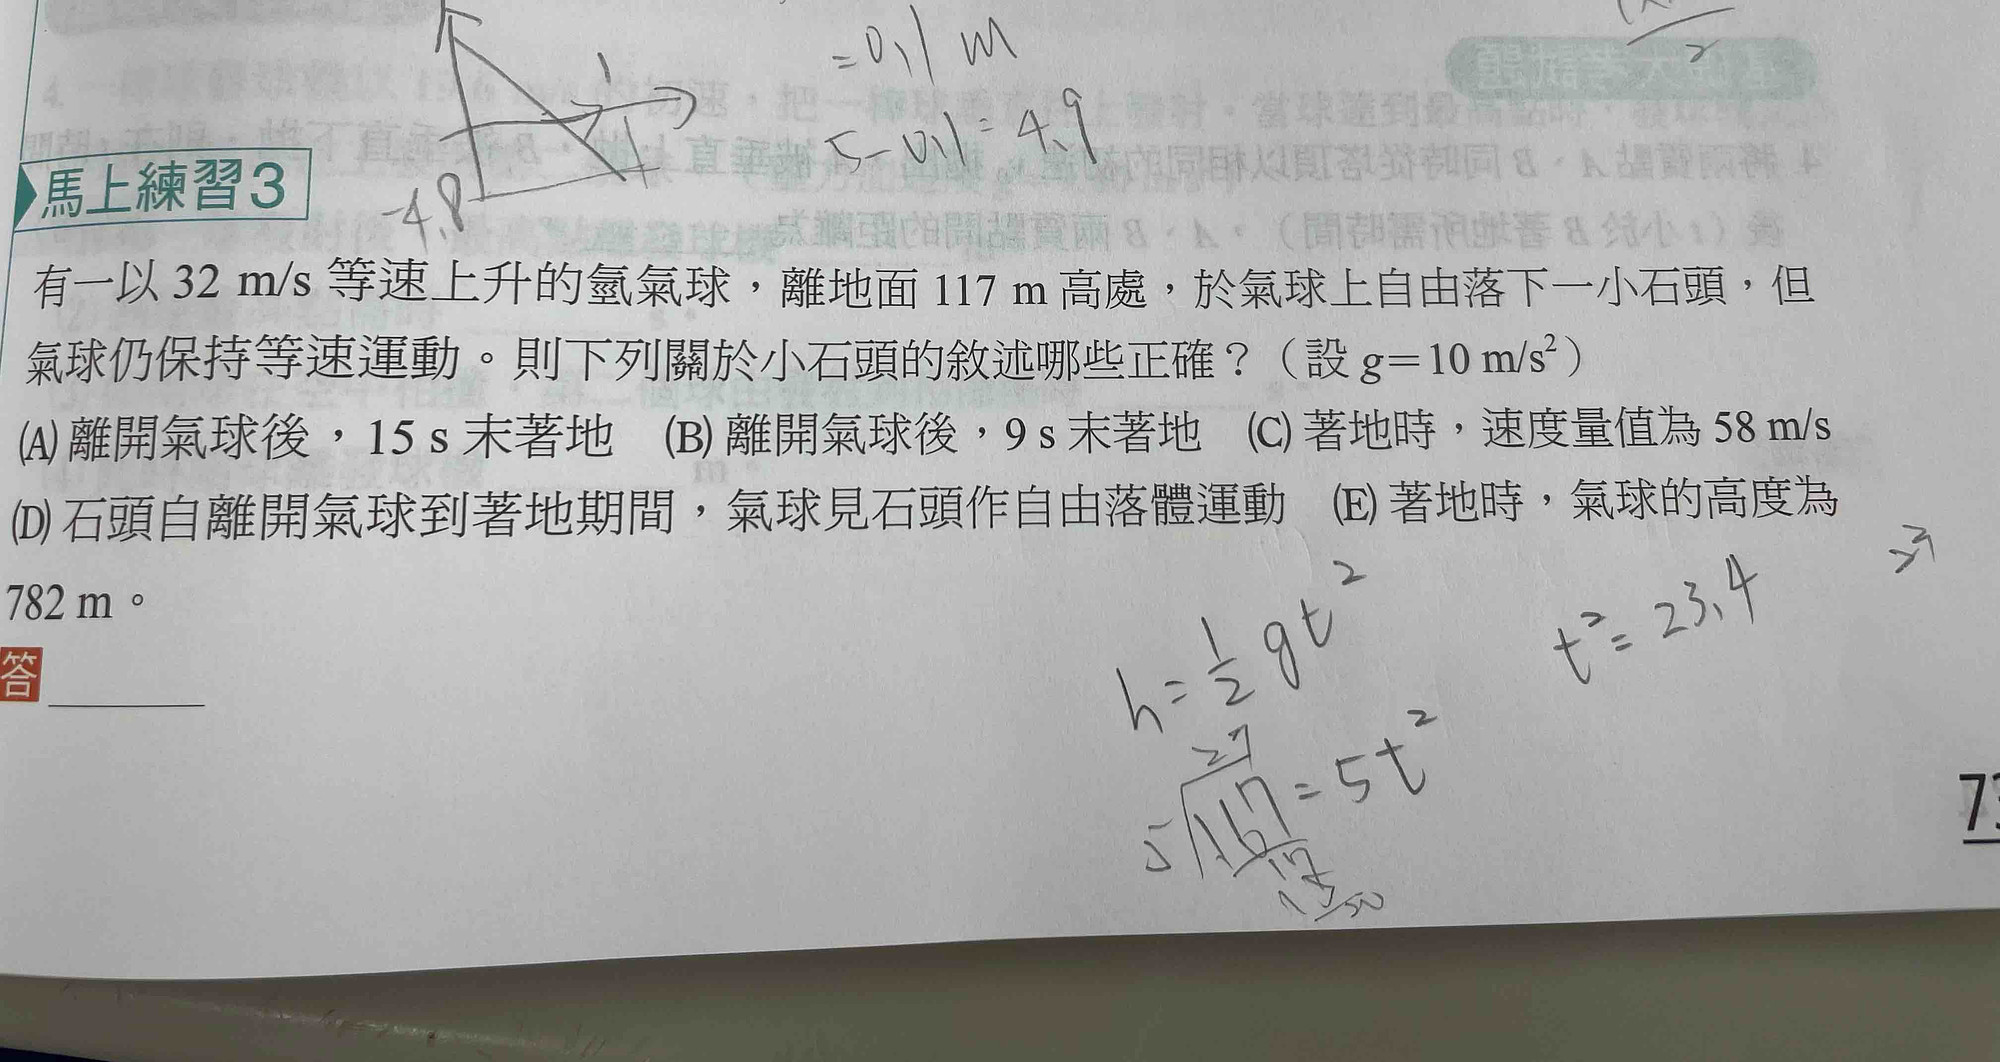 = 0.1 m
2
5 - 0.1 = 4.9
馬上練習3
-4.8
有一以 32 m/s 等速上升的氫氣球，離地面 117 m 高處，於氣球上自由落下一小石頭，但
氣球仍保持等速運動。則下列關於小石頭的敘述哪些正確？（設 g＝10 m/s²）
(A) 離開氣球後，15 s 末著地　(B) 離開氣球後，9 s 末著地　(C) 著地時，速度量值為 58 m/s
(D) 石頭自離開氣球到著地期間，氣球見石頭作自由落體運動　(E) 著地時，氣球的高度為
782 m。
答
h = 1/2 gt²
t² = 23.4
5
= 5t²